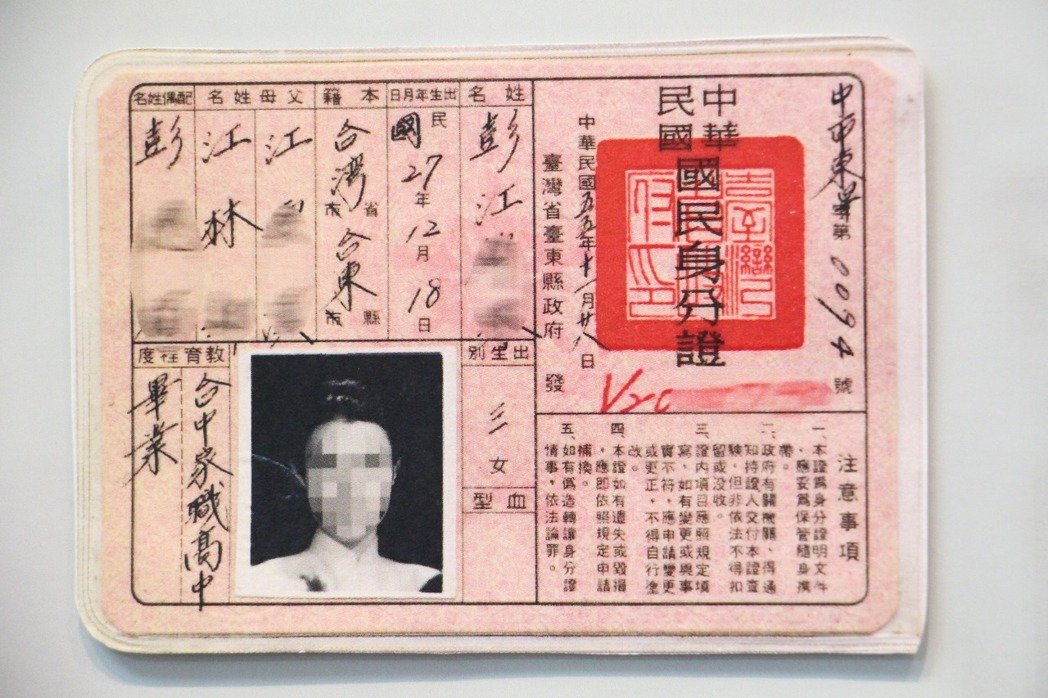 中中東單字第 0094 號
中華
民國
國民身分證
中華民國五五年十一月廿八日
臺灣省臺東縣政府
發
V20
注意事項
一、本證為身分證明文件
、應妥為保管隨身攜
帶。
二、政府有關機關、得通
知持證人交付本證查
驗、但非依法不得扣
留或沒收。
三、證內項目應照規定填
寫、如有變更或與事
實不符、應申請變更
或更正、不得自行塗
改。
四、本證如有遺失或毀損
、應即依照規定申請
補換。
五、如有偽造轉讓身分證
情事、依法論罪。
姓名
彭江
出生年月日
民國27年12月18日
本籍
台灣省市台東縣市
父母姓名
江
江林
配偶姓名
彭
出生別
三女
血型
教育程度
台中家職高中
畢業